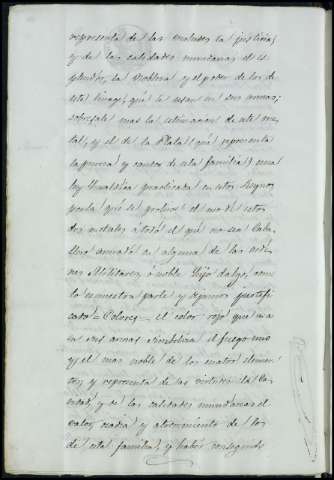 representa de las virtudes la justicia,
y de las calidades mundanas el es
plendor, la Nobleza y el poder de los de
este linage, que le usan en sus armas;
sobresale mas la estimacion de este me
tal, y el de la Plata (que representa
la pureza y candor de esta familia) una
ley Heraldica practicada en estos Reynos,
por la que se prohive el uso de estos
dos metales á todo el que no sea Caba
llero armado de alguna de las orde
nes Militares, ó noble Hijo dalgo, como
lo demuestra parte y dejamos justifi
cado = Colores = el color rojo que usa
en sus armas simboliza el fuego uno
y el mas noble de los cuatro elemen
tos, y representa de las virtudes la Ca
ridad, y de las calidades mundanas el
valor, osadia y atrevimiento de los
de esta familia, y haber conseguido